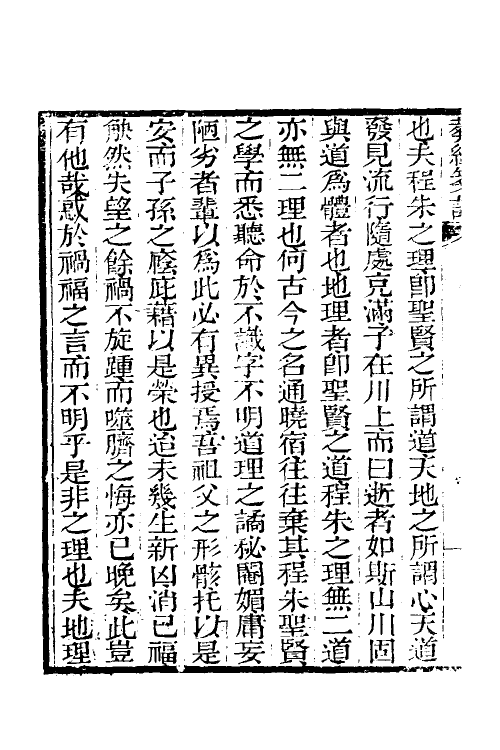 也夫程朱之理卽聖賢之所謂道天地之所謂心天道
發見流行隨處充滿子在川上而曰逝者如斯山川固
與道爲體者也地理者卽聖賢之道程朱之理無二道
亦無二理也何古今之名通曉宿往往棄其程朱聖賢
之學而悉聽命於不識字不明道理之譎秘閹媚庸妄
陋劣者輩以爲此必有異授焉吾祖父之形骸托以是
安而子孫之廕庇藉以是榮也迨未幾生新凶消已福
觖然失望之餘禍不旋踵而噬臍之悔亦已晚矣此豈
有他哉惑於禍福之言而不明乎是非之理也夫地理